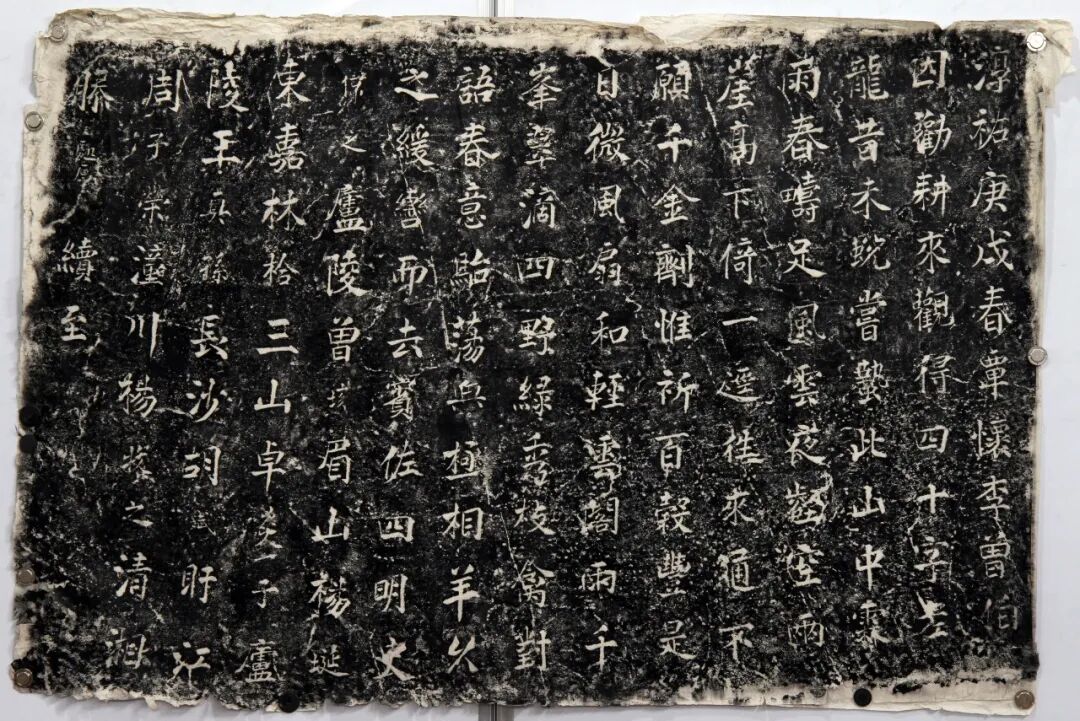 淳祐庚戌春覃懷李曾伯
因勸耕來觀得四十字
龍昔未蛻嘗蟄此山中霖
雨春疇足風雲夜壑空兩
崖高下倚一逕往來通不
願千金劑惟祈百穀豐是
日微風扇和輕閣雨千
峯翠滴四野綠秀枝禽對
語春意駘蕩興極相羊久
之緩轡而去賓佐四明史
之廬陵曾眉山楊埏
東嘉林三山卓子廬
陵王真孫長沙胡盱江
周子榮潼川楊之清湘
滕處厚續至